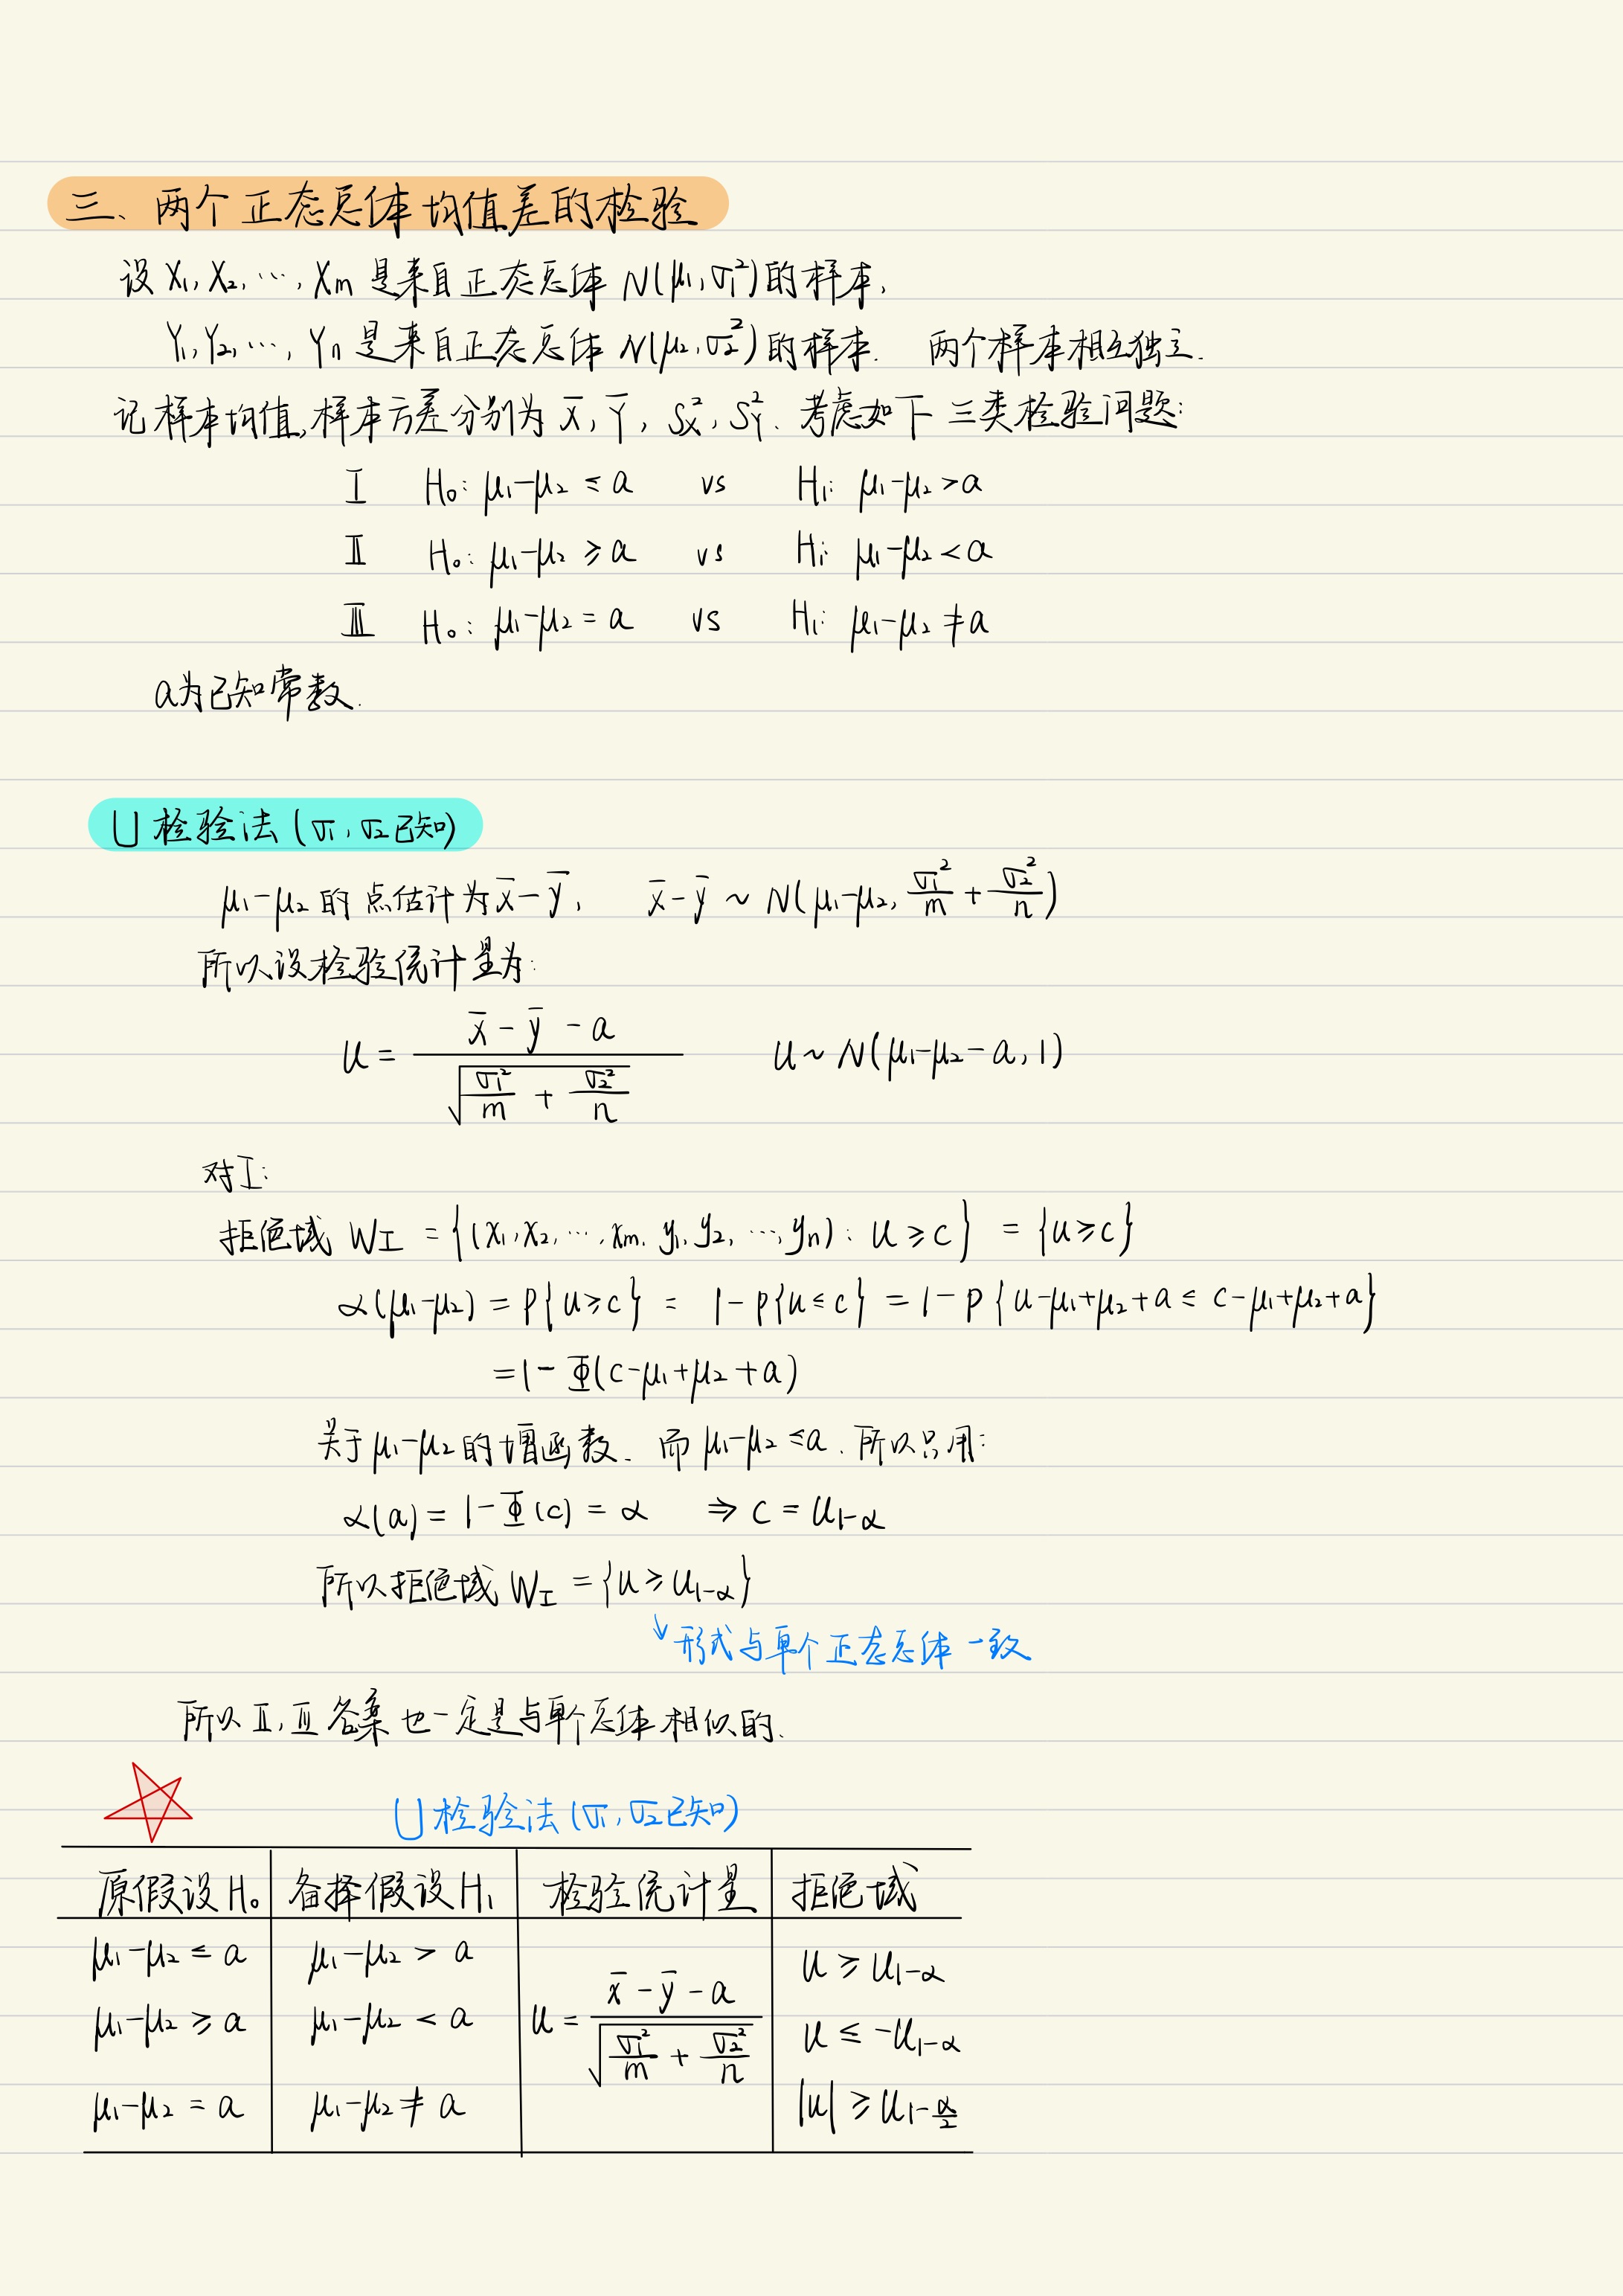 三、两个正态总体均值差的检验
设 X₁, X₂, …, Xm 是来自正态总体 N(μ₁, σ₁²) 的样本,
Y₁, Y₂, …, Yn 是来自正态总体 N(μ₂, σ₂²) 的样本. 两个样本相互独立.
记样本均值,样本方差分别为 x̄, Ȳ, Sx², SY². 考虑如下三类检验问题:
Ⅰ H₀: μ₁-μ₂ ≤ a vs H₁: μ₁-μ₂ > a
Ⅱ H₀: μ₁-μ₂ ≥ a vs H₁: μ₁-μ₂ < a
Ⅲ H₀: μ₁-μ₂ = a vs H₁: μ₁-μ₂ ≠ a
a为已知常数.
U 检验法 (σ₁, σ₂已知)
μ₁-μ₂ 的点估计为 x̄-ȳ, x̄-ȳ ~ N(μ₁-μ₂, σ₁²/m + σ₂²/n)
所以设检验统计量为:
u = (x̄-ȳ-a) / √(σ₁²/m + σ₂²/n) u ~ N(μ₁-μ₂-a, 1)
对Ⅰ:
拒绝域 WⅠ = {(x₁, x₂, …, xm, y₁, y₂, …, yn): u ≥ c} = {u ≥ c}
α(μ₁-μ₂) = P{u ≥ c} = 1-P{u ≤ c} = 1-P{u-μ₁+μ₂+a ≤ c-μ₁+μ₂+a}
= 1-Φ(c-μ₁+μ₂+a)
关于 μ₁-μ₂ 的增函数. 而 μ₁-μ₂ ≤ a. 所以只用:
α(a) = 1-Φ(c) = α ⇒ c = u₁₋α
所以拒绝域 WⅠ = {u ≥ u₁₋α}
↘ 形式与单个正态总体一致
所以Ⅱ, Ⅲ答案也一定是与单个总体相似的.
U检验法 (σ₁, σ₂已知)
原假设 H₀ 备择假设 H₁ 检验统计量 拒绝域
μ₁-μ₂ ≤ a μ₁-μ₂ > a u ≥ u₁₋α
μ₁-μ₂ ≥ a μ₁-μ₂ < a u = (x̄-ȳ-a) / √(σ₁²/m + σ₂²/n) u ≤ -u₁₋α
μ₁-μ₂ = a μ₁-μ₂ ≠ a |u| ≥ u₁₋α/₂